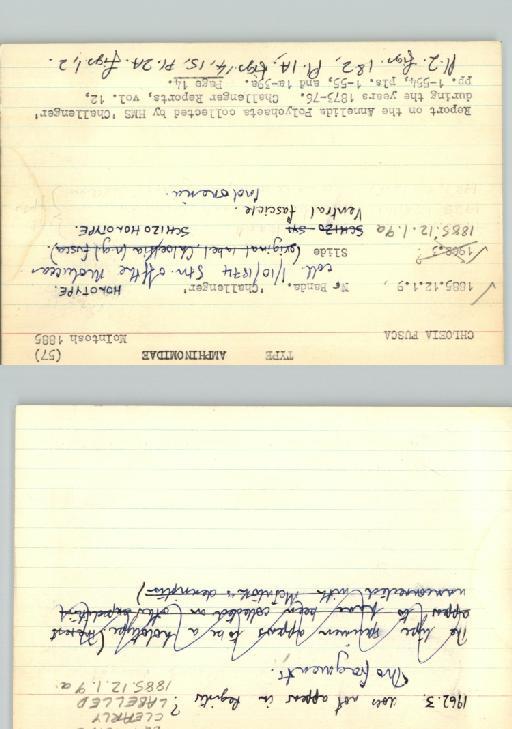 TYPE AMPHINOMIDAE (57)
CHLOEIA FUSCA McIntosh 1885
1885.12.1.9, Nr Banda. 'Challenger' HOLOTYPE.
coll. 1/10/1874 Stn. off the Moluccas
1962.3.? Slide (original label, Chloeia (n.g.) fusca)
1885.12.1.9a SCHIZO-SYN SCHIZOHOLOTYPE.
Ventral fascicle.
Indonesia.
Report on the Annelida Polychaeta collected by HMS 'Challenger'
during the years 1873-76. Challenger Reports, vol. 12,
pp. 1-554, pls. 1-55, and 1a-39a. Page 14
Pl. 2. figs. 1&2, Pl. 1A, figs 14, 15. Pl. 2A figs 1, 2.
1962.3. does not appear in Register?
CLEARLY
LABELLED
1885.12.1.9a
Two fragments.
The type specimen appears to be a holotype (
appear to have been collected on the expedition
unconnected with McIntosh's description)